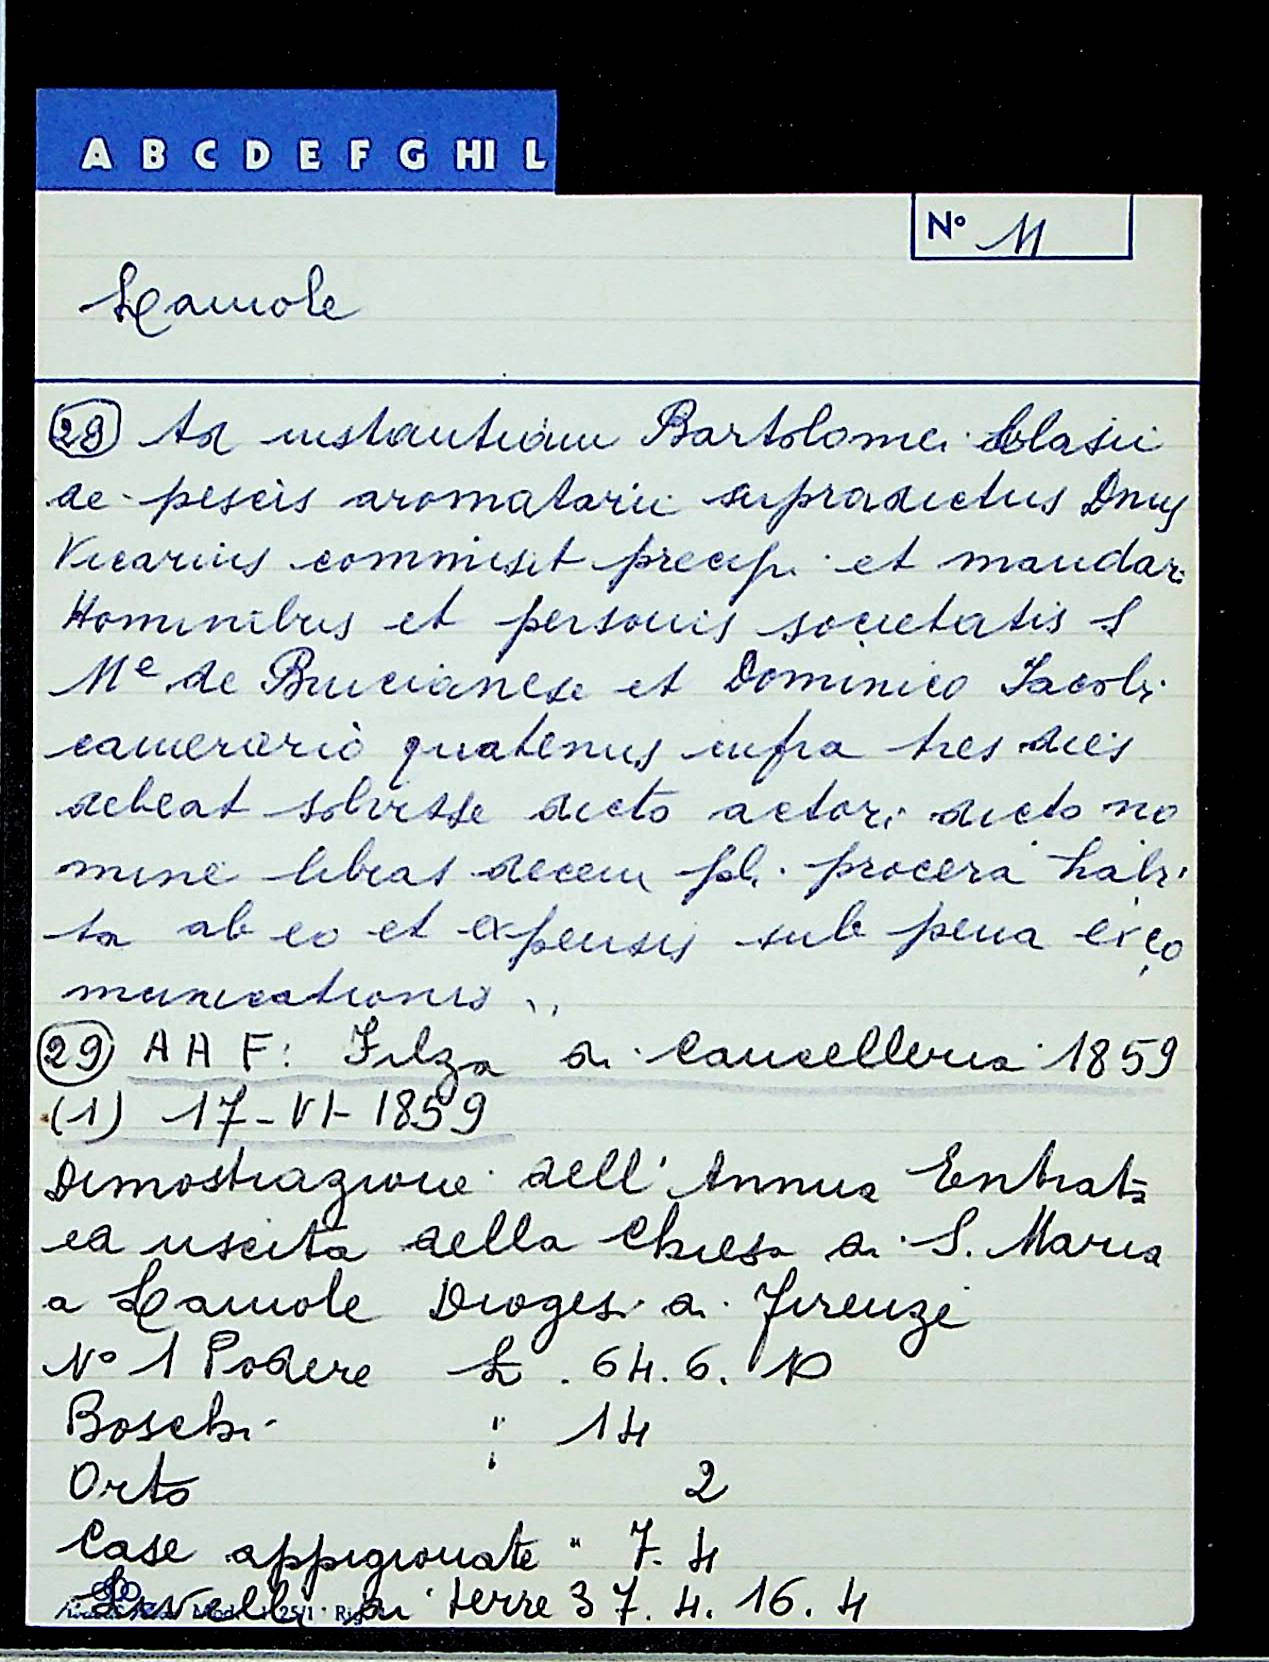 A B C D E F G HI L
N° 11
Lamole
(28) Ad instantiam Bartolomei blasii
de pescis aromatarii supradictus Dnus
Vicarius commisit precipi et mandari
Hominibus et personis societatis S
Me de Brucianese et Dominico Jacobi
camerario quatenus infra tres dies
debeat solvisse dicto actori dicto no
mine libras decem pl. procera habi
ta ab eo et expensis sub pena exco
municationis
(29) A A F: Filza di Cancelleria 1859
(1) 17-VI-1859
Dimostrazione dell'Annua Entrata
ed uscita della Chiesa di S. Maria
a Lamole Diogesi di Firenze
N° 1 Podere L. 64.6.10
Boschi " 14
Orto 2
Case appigionate " 7.4
Livelli di terre 37.4.16.4